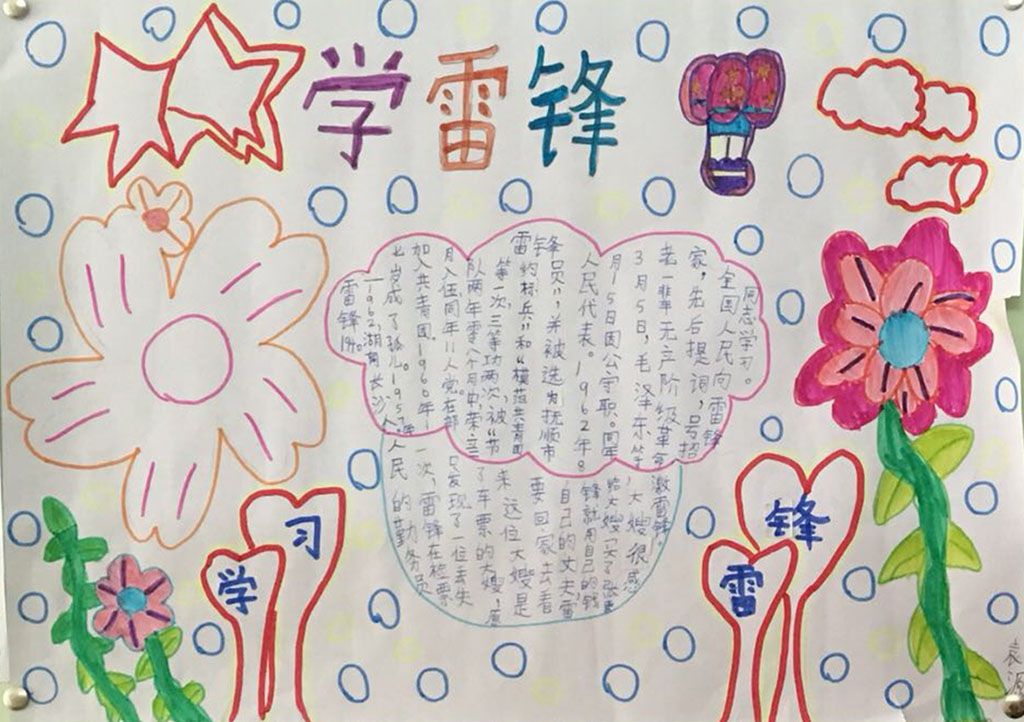 学雷锋
雷锋1940。
一1962,湖南长沙人
七岁成了孤儿1957年
加入共青团。1960年一
月入伍同年11人党在部
队两年零八个月中荣立三
第一次,三等功两次,被“节
雷约标兵”和“模范共青团
锋员”,并被选为抚顺市
人民代表。1962年8
月15日因公牢职。同年
3月5日,毛泽东等
老一辈无产阶级革命
家,先后提词,号招
全国人民向雷锋
同志学习。
人民的勤务员
一次,雷锋在检票
只发现了一位丢失
了车票的大嫂,原
来这位大嫂是
要回家去看
自己的丈夫雷
锋就用自己的钱
给大嫂买了张票
大嫂很感
激雷锋
学
习
雷
锋
袁源